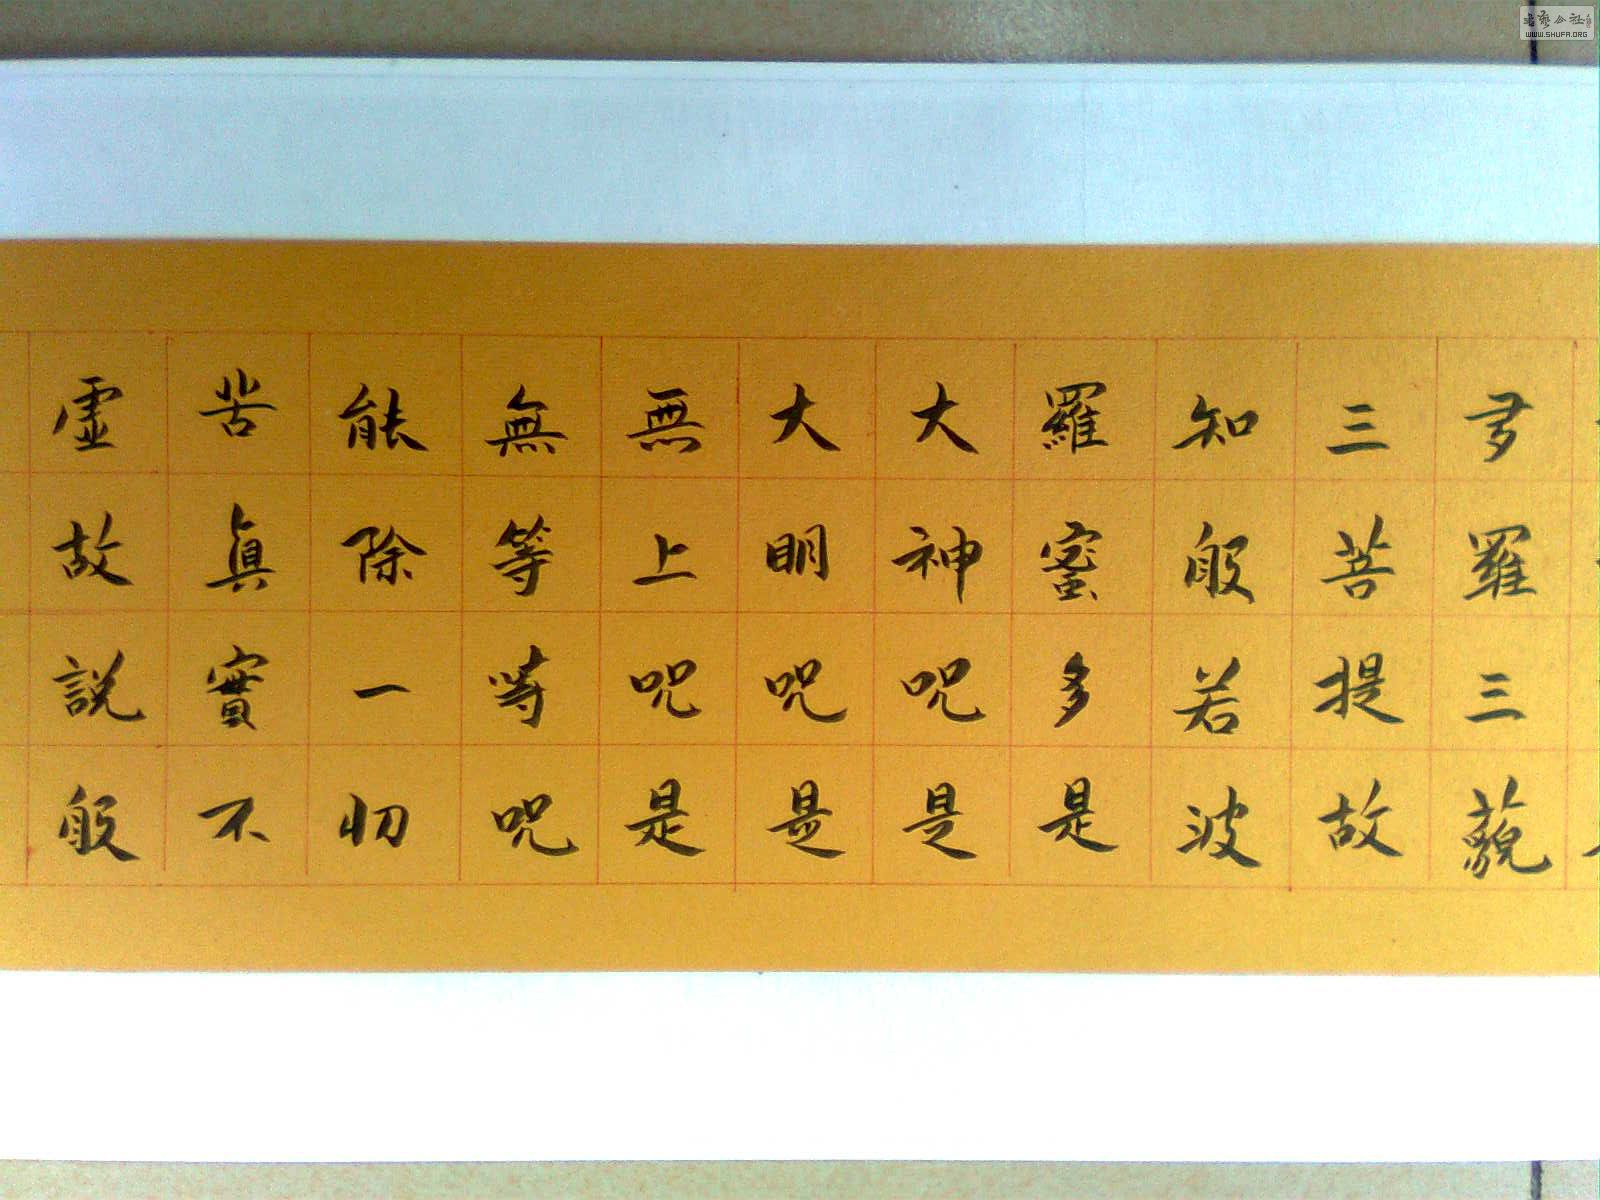 多羅三藐
三菩提故
知般若波
羅蜜多是
大神咒是
大明咒是
無上咒是
無等等咒
能除一切
苦真實不
虛故說般
WWW.SHUFA.ORG